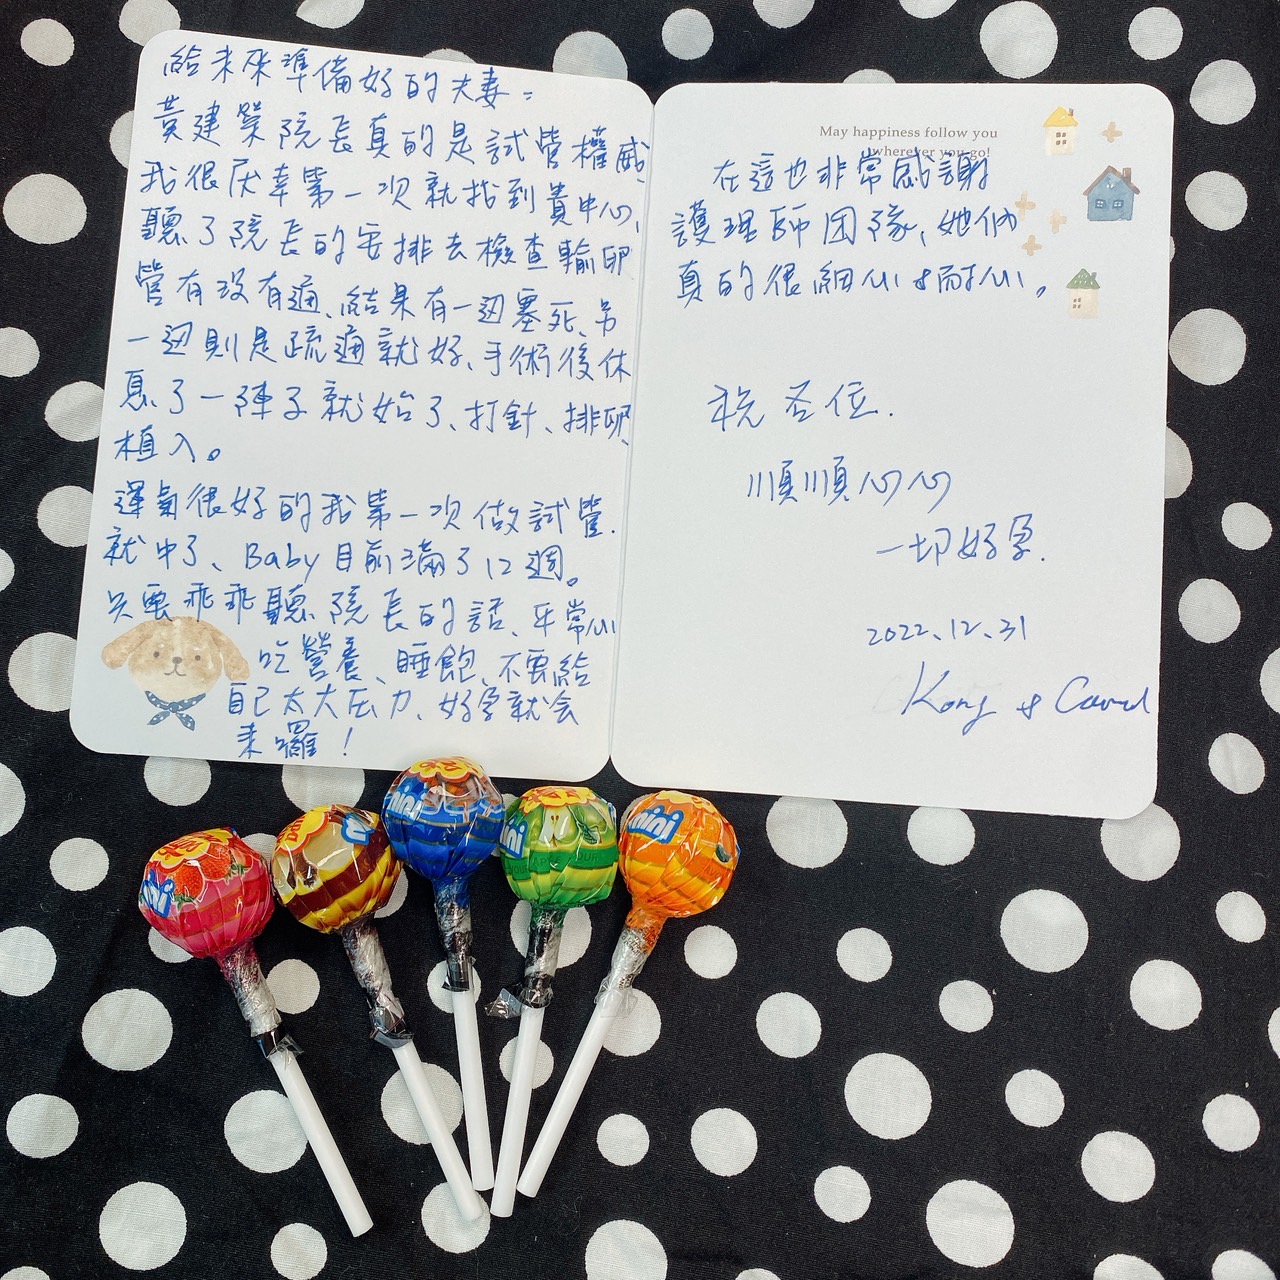 給未來準備好的夫妻：
黃建榮院長真的是試管權威
我很庆幸第一次就找到貴中心、
聽了院長的安排去檢查輸卵
管有没有通、結果有一边塞死、另
一边則是疏通就好、手術後休
息了一陣子就始了、打針、排卵、
植入。
運氣很好的我第一次做試管
就中了、Baby目前滿了12週。
只要乖乖聽院長的話、平常心
吃營養、睡飽、不要給
自己太大压力、好孕就会
來囉！
May happiness follow you
wherever you go!
在這也非常感謝
護理師团隊、她们
真的很細心&耐心。
祝各位.
順順心心
一切好孕.
2022.12.31
Kong & Carol
mini
mini
mini
mini